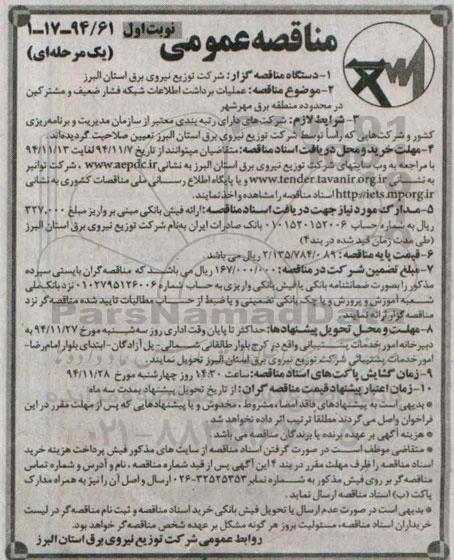 مناقصه عمومی
نوبت اول
۱-۱۷-۹۴/۶۱
(یک مرحله‌ای)
۱-دستگاه مناقصه گزار: شرکت توزیع نیروی برق استان البرز
۲-موضوع مناقصه: عملیات برداشت اطلاعات شبکه فشار ضعیف و مشترکین
در محدوده منطقه برق مهرشهر
۳- شرایط لازم: شرکت‌های دارای رتبه بندی معتبر از سازمان مدیریت و برنامه‌ریزی
کشور و شرکت‌هایی که راسا توسط شرکت توزیع نیروی برق استان البرز تعیین صلاحیت گردیده‌اند.
۴-مهلت خرید و محل دریافت اسناد مناقصه: متقاضیان میتوانند از تاریخ ۹۴/۱۱/۷ لغایت ۹۴/۱۱/۱۳
با مراجعه به وب سایتهای شرکت توزیع نیروی برق استان البرز به نشانی www.aepdc.ir ، شرکت توانیر
به نشانی www.tender.tavanir.org.ir و یا پایگاه اطلاع رسانی ملی مناقصات کشوری به نشانی
http://iets.mporg.ir اسناد مناقصه را مشاهده و اخذ نمایند.
۵-مدارک مورد نیاز جهت دریافت اسناد مناقصه: ارائه فیش بانکی مبنی بر واریز مبلغ ۳۲۷,۰۰۰
ریال به شماره حساب ۰۱۰۱۵۲۰۱۵۲۰۰۶ بانک صادرات ایران بنام شرکت توزیع نیروی برق استان البرز
(طی مدت زمان قید شده در بند۴)
۶-قیمت پایه مناقصه: ۲/۱۳۵/۷۸۴/۰۸۹ ریال می باشد.
۷-مبلغ تضمین شرکت در مناقصه: ۱۶۷/۰۰۰/۰۰۰ ریال می باشد که مناقصه گران بایستی سپرده
مذکور را بصورت ضمانتنامه بانکی یا فیش بانکی واریزی به حساب شماره ۰۱۰۲۷۹۵۱۲۶۰۰۶ نزد بانک ملی
شعبه آموزش و پرورش و یا چک بانکی تضمینی و یا ضبط از حساب مطالبات تایید شده مناقصه‌گر نزد
مناقصه گزار ارائه نمایند.
۸-مهلت و محل تحویل پیشنهادها: حداکثر تا پایان وقت اداری روز سه‌شنبه مورخ ۹۴/۱۱/۲۷ به
دبیرخانه امور خدمات پشتیبانی واقع در کرج بلوار طالقانی شمالی-پل آزادگان-ابتدای بلوار امام رضا-
امور خدمات پشتیبانی شرکت توزیع نیروی برق استان البرز تحویل نمایند.
۹-زمان گشایش پاکت های اسناد مناقصه: ساعت ۱۴:۳۰ روز چهارشنبه مورخ ۹۴/۱۱/۲۸
۱۰-زمان اعتبار پیشنهاد قیمت مناقصه گران: از تاریخ تحویل پیشنهاد بمدت سه ماه
* بدیهی است به پیشنهادهای فاقد امضاء، مشروط، مخدوش و یا پیشنهادهایی که پس از مهلت مقرر در این
فراخوان واصل می گردند مطلقا ترتیب اثر داده نخواهد شد.
* هزینه آگهی بر عهده برنده یا برندگان مناقصه می باشد.
* متقاضی موظف است در صورت گرفتن اسناد مناقصه از سایت های مذکور فیش پرداخت هزینه خرید
اسناد مناقصه را ظرف مهلت مقرر در بند ۴ این آگهی پس از قید شماره مناقصه، نام و آدرس و شماره تماس
مناقصه گر بر روی فیش مذکور به شماره نمابر ۳۲۵۲۵۳۵۳-۰۲۶ ارسال و اصل آن را نیز به همراه مدارک
پاکت (ب) اسناد مناقصه ارسال نماید.
* بدیهی است در صورت عدم ارسال یا تحویل فیش بانکی خرید اسناد مناقصه و ثبت نام مناقصه گر در لیست
خریداران اسناد مناقصه، مسئولیت بروز هر گونه مشکل بر عهده شخص مناقصه گر خواهد بود.
روابط عمومی شرکت توزیع نیروی برق استان البرز
ParsNamadData